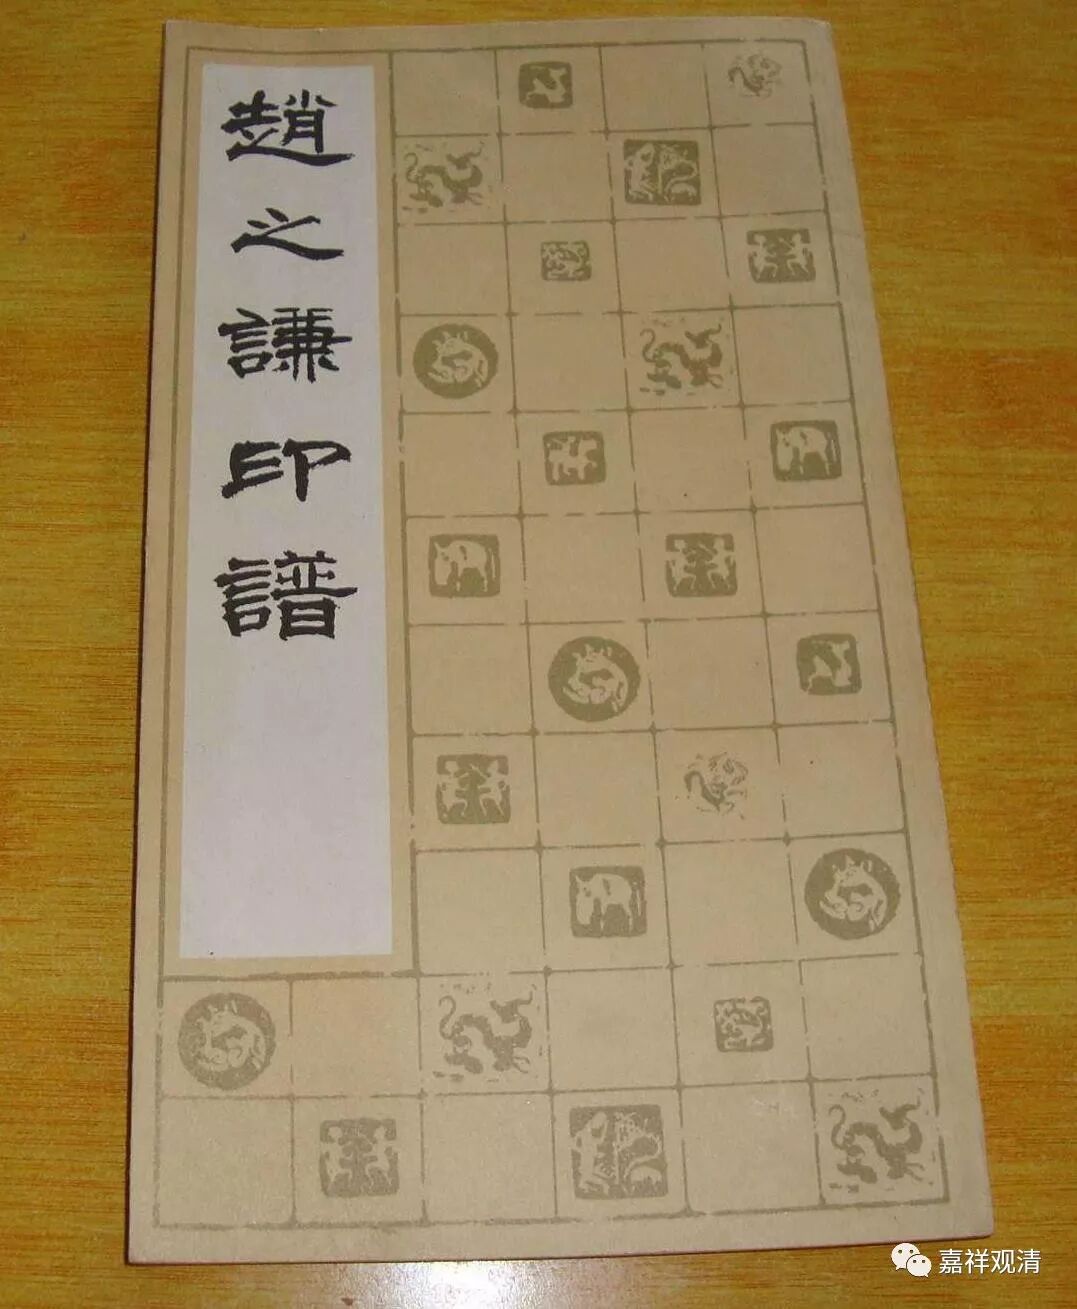 趙之謙印譜
嘉祥观清